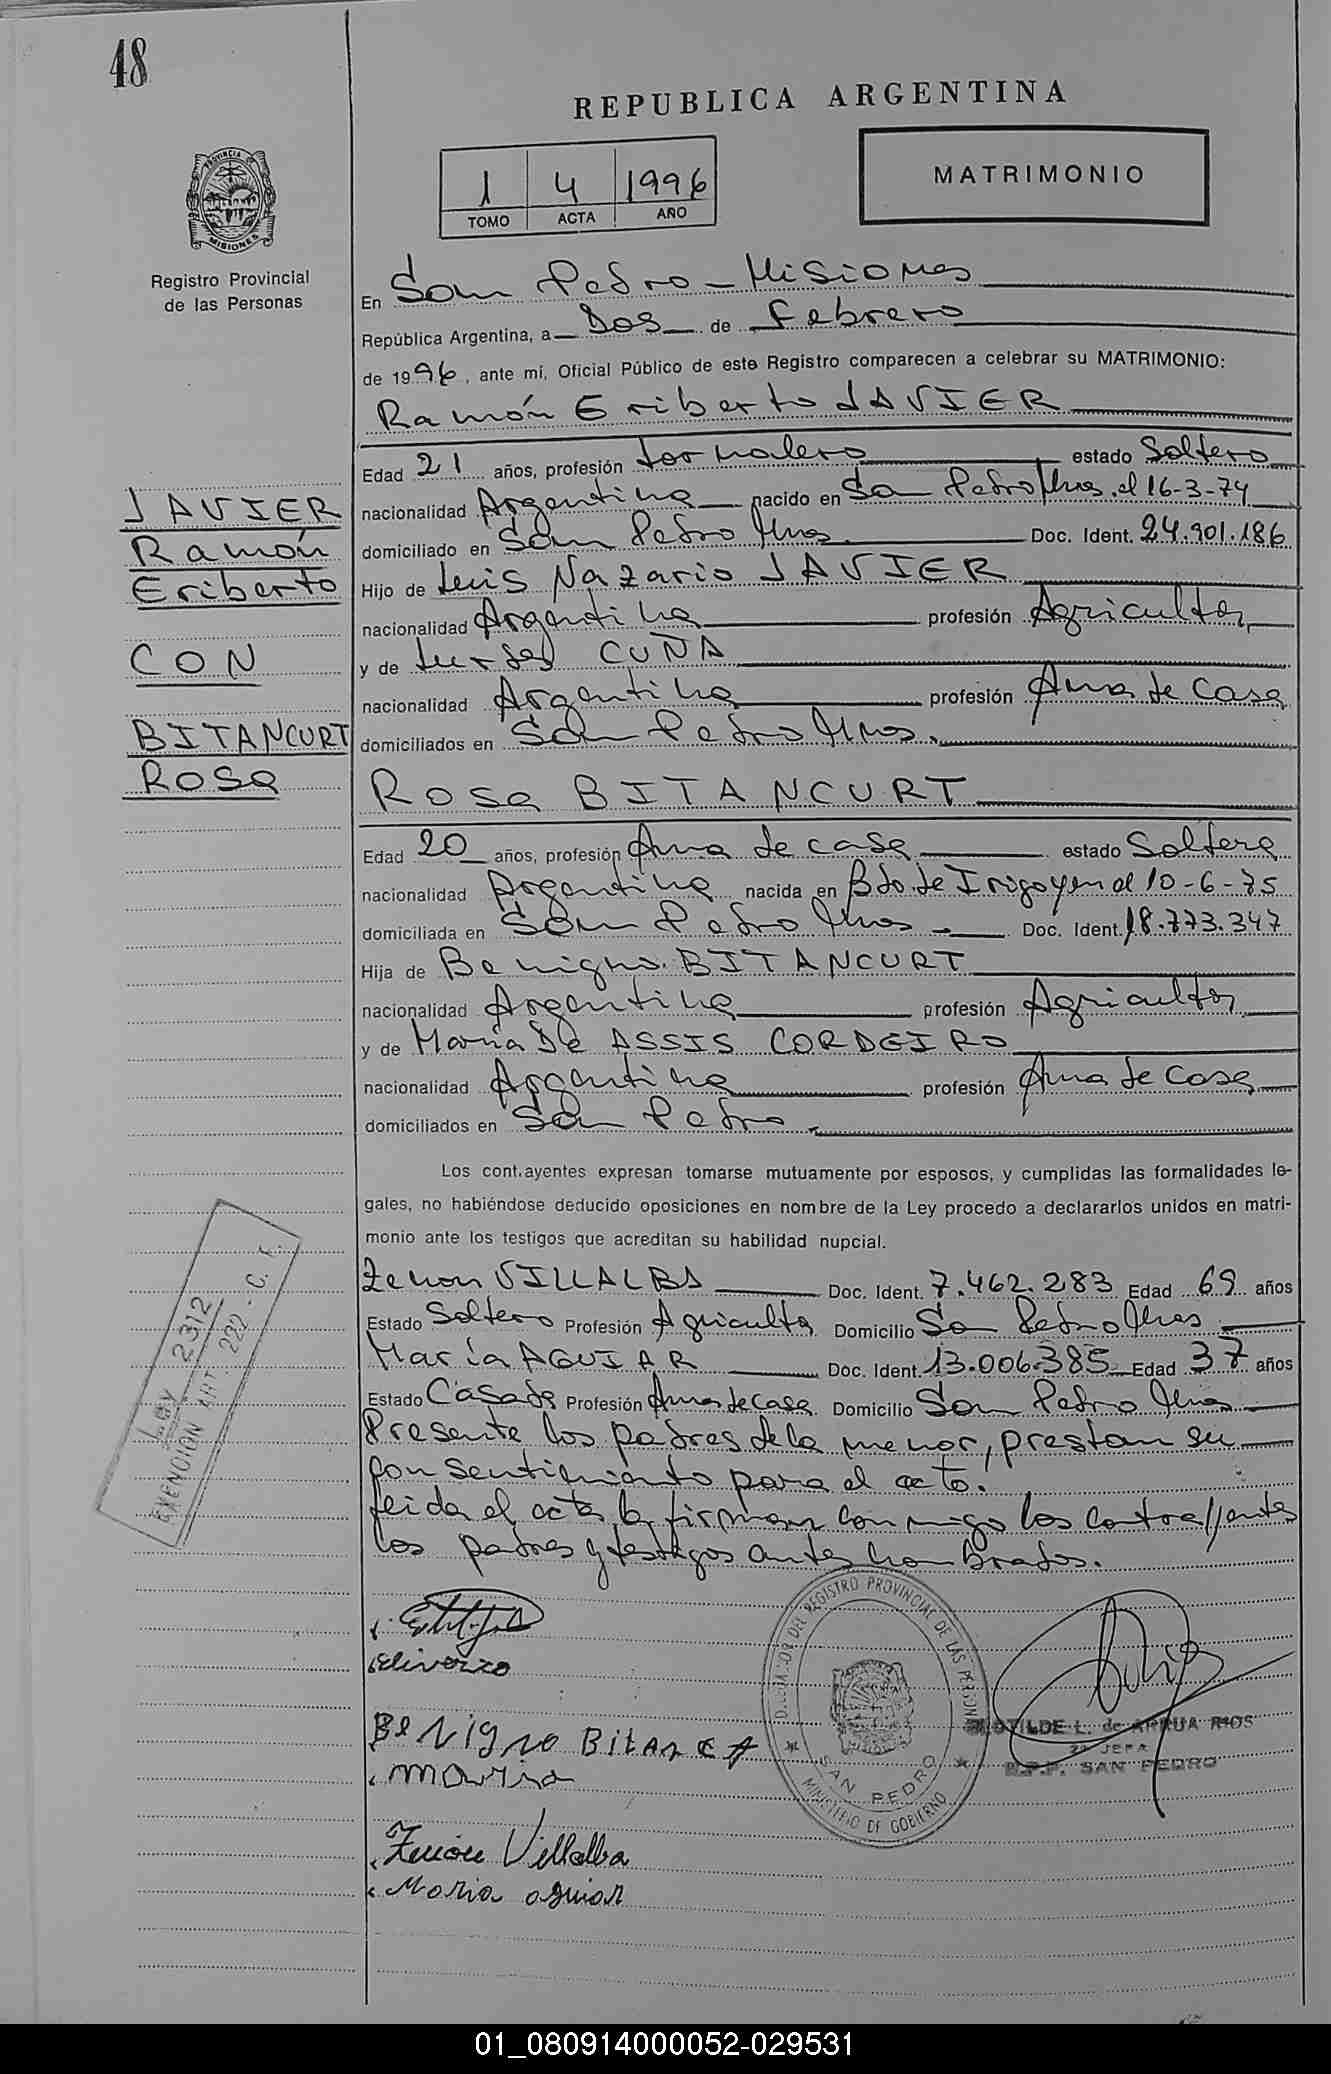 48
REPUBLICA ARGENTINA
MATRIMONIO
1 4 1996
TOMO ACTA AÑO
PROVINCIA
MISIONES
Registro Provincial
de las Personas
En San Pedro - Misiones
República Argentina, a Dos de Febrero
de 1996, ante mí, Oficial Público de este Registro comparecen a celebrar su MATRIMONIO:
Ramón Eriberto JAVIER
Edad 21 años, profesión Jornalero estado Soltero
nacionalidad Argentina nacido en San Pedro Mnes. el 16-3-74
domiciliado en San Pedro Mnes. Doc. Ident. 24.901.186
Hijo de Luis Nazario JAVIER
nacionalidad Argentina profesión Agricultor
y de CUÑA
nacionalidad Argentina profesión Ama de Casa
domiciliados en San Pedro Mnes.
JAVIER
Ramón
Eriberto
CON
BITANCURT
Rosa
Rosa BITANCURT
Edad 20 años, profesión Ama de casa estado Soltera
nacionalidad Argentina nacida en Bdo. de Irigoyen el 10-6-75
domiciliada en San Pedro Mnes - Doc. Ident. 18.773.347
Hija de Benigno BITANCURT
nacionalidad Argentina profesión Agricultor
y de María De ASSIS CORDEIRO
nacionalidad Argentina profesión Ama de Casa
domiciliados en San Pedro.
Los cont.ayentes expresan tomarse mutuamente por esposos, y cumplidas las formalidades le-
gales, no habiéndose deducido oposiciones en nombre de la Ley procedo a declararlos unidos en matri-
monio ante los testigos que acreditan su habilidad nupcial.
Zenon VILLALBA Doc. Ident. 7.462.283 Edad 69 años
Estado Soltero Profesión Agricultor Domicilio San Pedro Mnes.
María AGUIAR Doc. Ident. 13.006.385 Edad 37 años
Estado Casada Profesión Ama de Casa Domicilio San Pedro Mnes
Presente los padres de la menor, prestan su
consentimiento para el acto.
Leida el acta la firman conmigo los contrayentes
los padres y testigos antes nombrados.
Ley 2312
EXENCION ART. 222 - C. F.
Benigno
maria
Zenón Villalba
Maria aguiar
DEL REGISTRO PROVINCIAL DE LAS PERSONAS
SAN PEDRO
MINISTERIO DE GOBIERNO
CLOTILDE L. de ARRUA RIOS
JEFA
R.P.P. SAN PEDRO
01_080914000052-029531